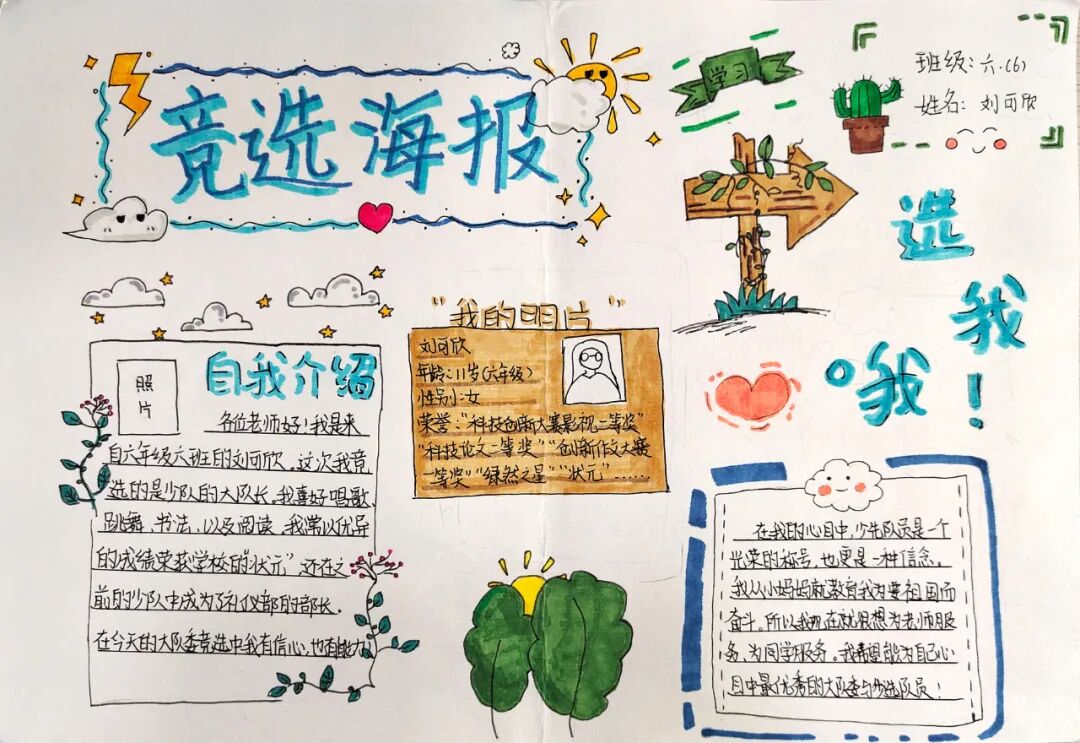 竞选海报
学习
班级:六.(6)
姓名:刘可欣
选
我
哦!
自我介绍
照
片
各位老师好!我是来
自六年级六班的刘可欣。这次我竞
选的是少队的大队长。我喜好唱歌、
跳舞、书法,以及阅读。我常以优异
的成绩荣获学校的"状元"还在之
前的少队中成为了礼仪部的部长。
在今天的大队委竞选中我有信心,也有能力
"我的名片"
刘可欣
年龄:11岁(六年级)
性别:女
荣誉:"科技创新大赛影视二等奖"
"科技论文二等奖""创新作文大赛
一等奖""绿然之星""状元"……
在我的心目中,少先队员是一个
光荣的称号,也更是一种信念。
我从小妈妈就教育我为要祖国而
奋斗。所以我现在就很想为老师服
务、为同学服务。我希望能为自己心
目中最优秀的大队委与少选队员!